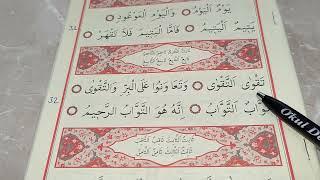 يَوْمٌ اَلْيَوْمُ وَالْيَوْمِ الْمَوْعُودِ
يَتِيمٌ اَلْيَتِيمُ فَاَمَّا الْيَتِيمَ فَلَا تَقْهَرْ
32
تَقْوٰى اَلتَّقْوٰى وَتَعَاوَنُوا عَلَى الْبِرِّ وَالتَّقْوٰى
تَوَّابٌ اَلتَّوَّابُ اِنَّهُ هُوَ التَّوَّابُ الرَّحِيمُ
32
Okul D